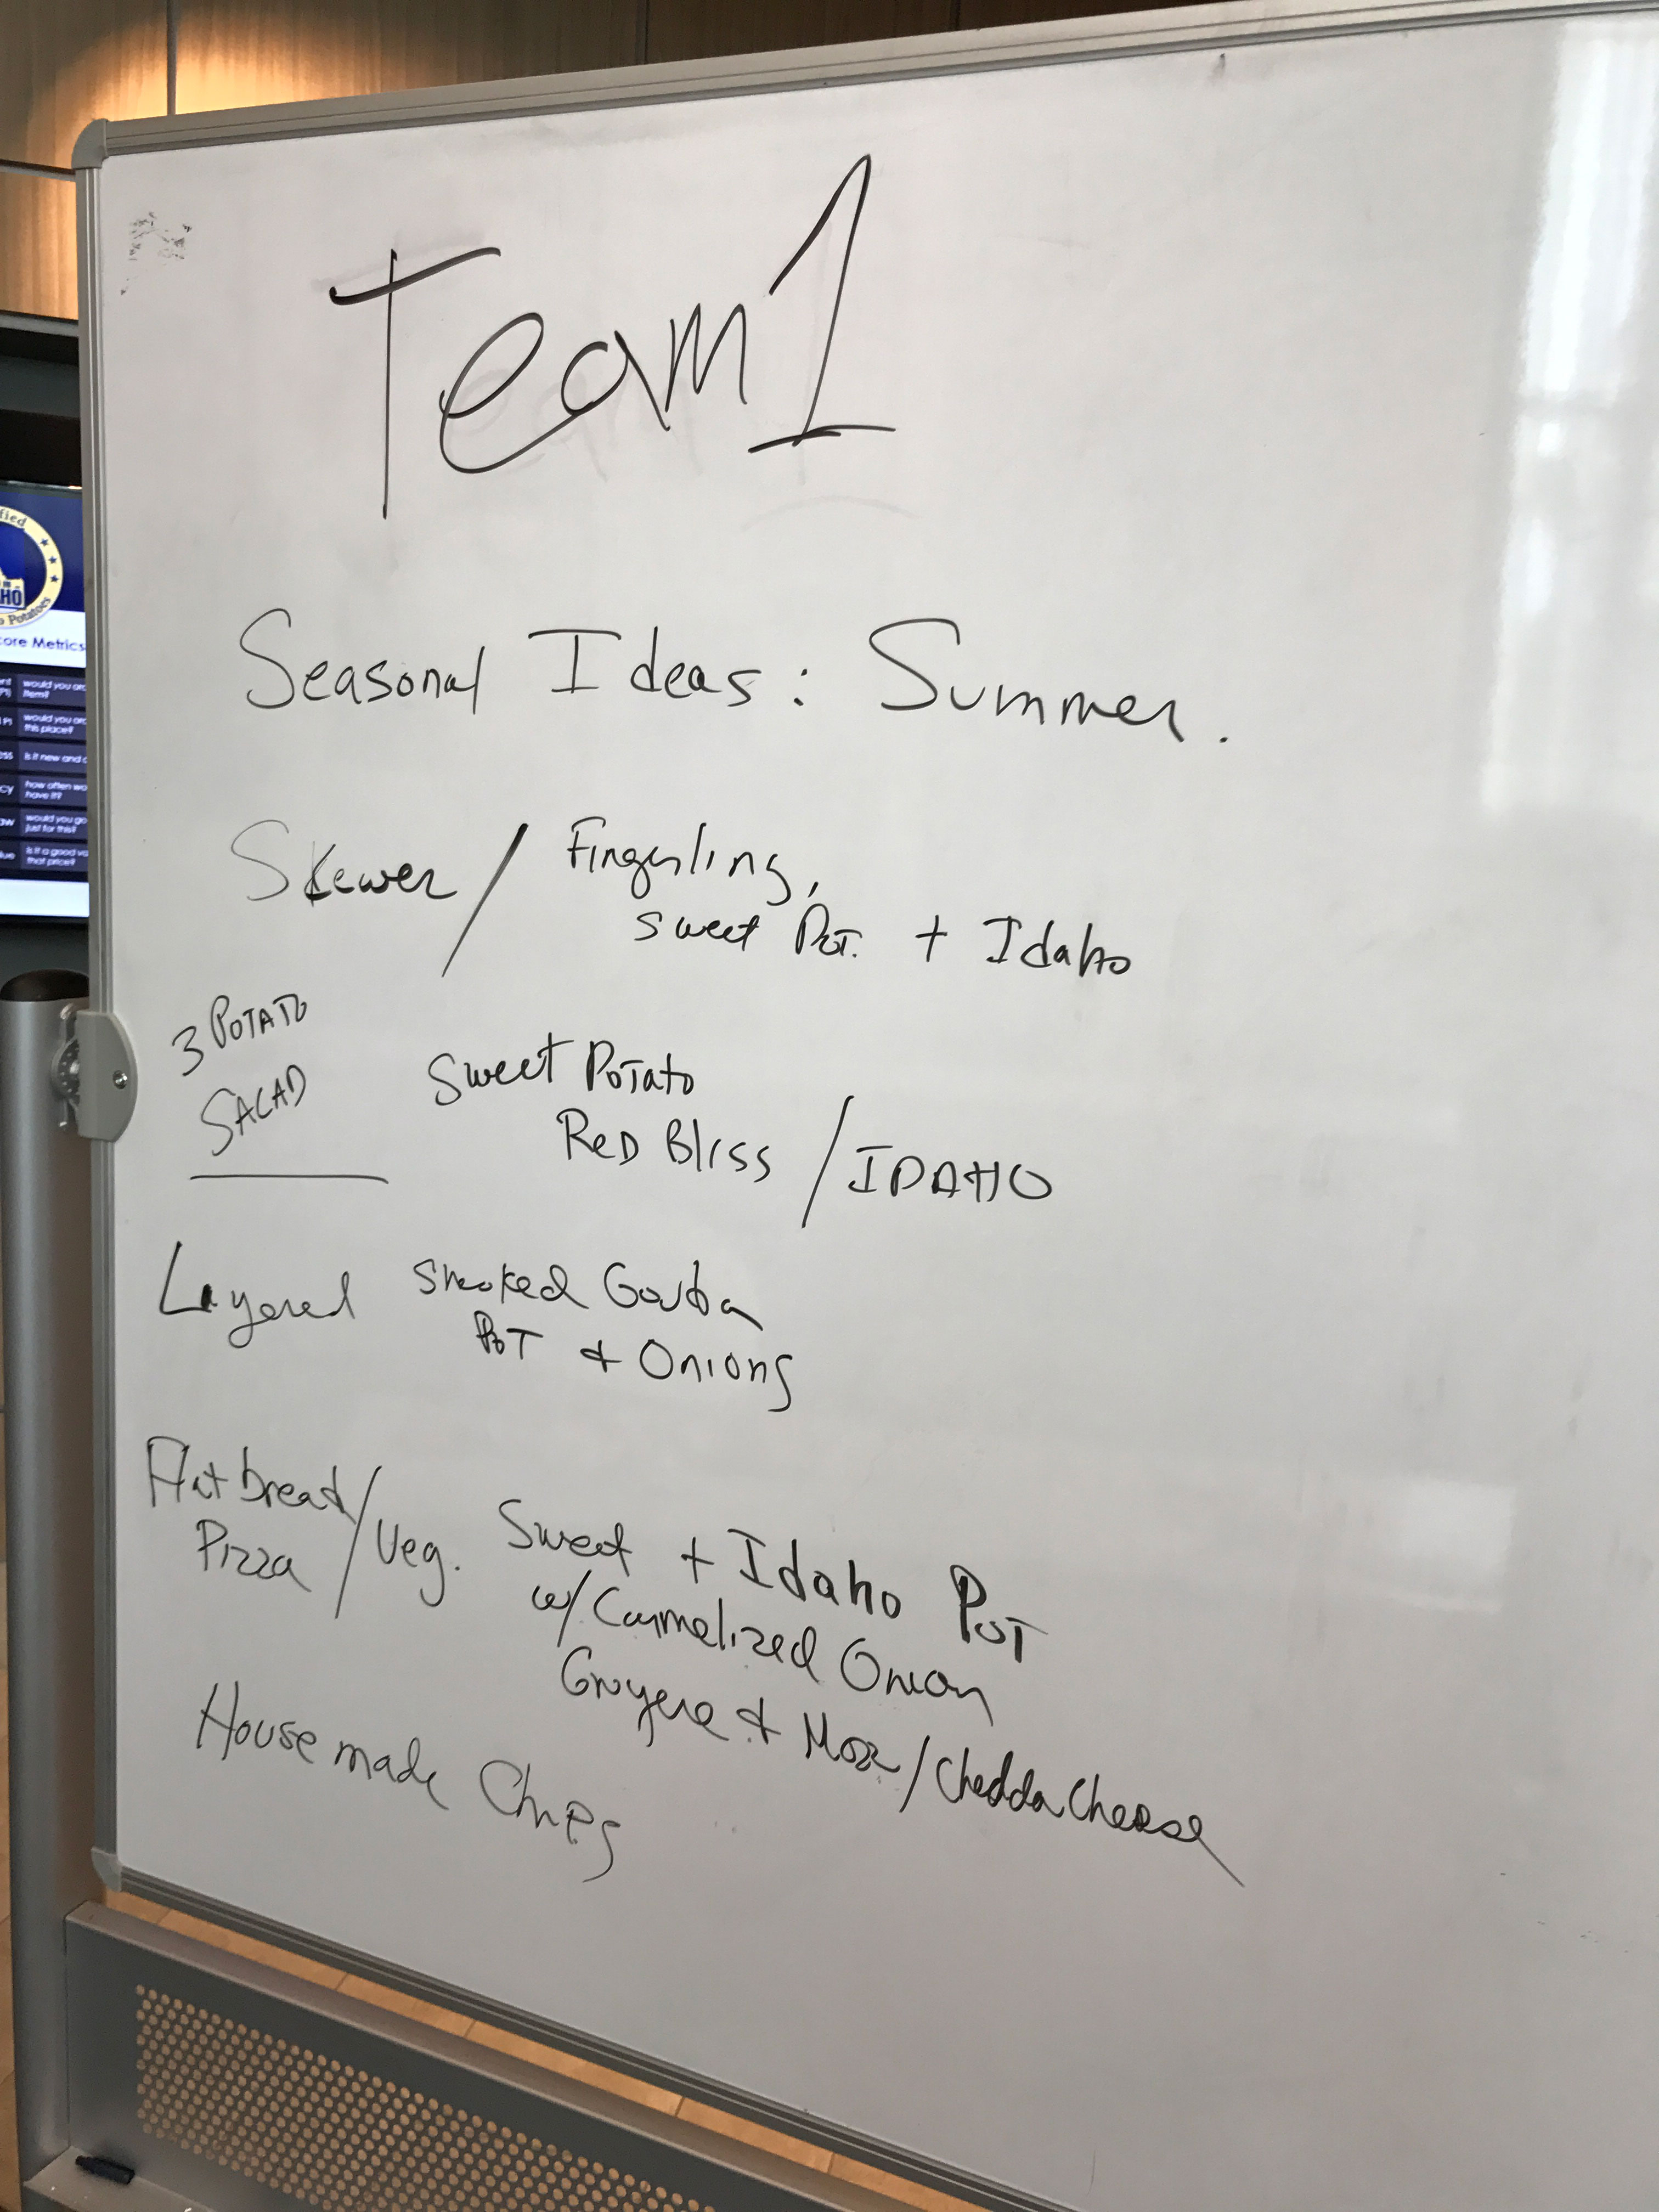 Team 1
Seasonal Ideas: Summer.
Skewer / Fingerling,
sweet Pot. + Idaho
3 POTATO
SALAD
Sweet Potato
Red Bliss / IDAHO
Layered Smoked Gouda
Pot & Onions
Flatbread/
Pizza / Veg. Sweet + Idaho Pot
w/ Carmelized Onion
Gruyere & Mozz/Chedda Cheese
House made Chips
Potatoes
ore Metrics
would you
item?
would you
this place?
is it new and
how often
have it?
would you go
just for this?
is it a good
that price?